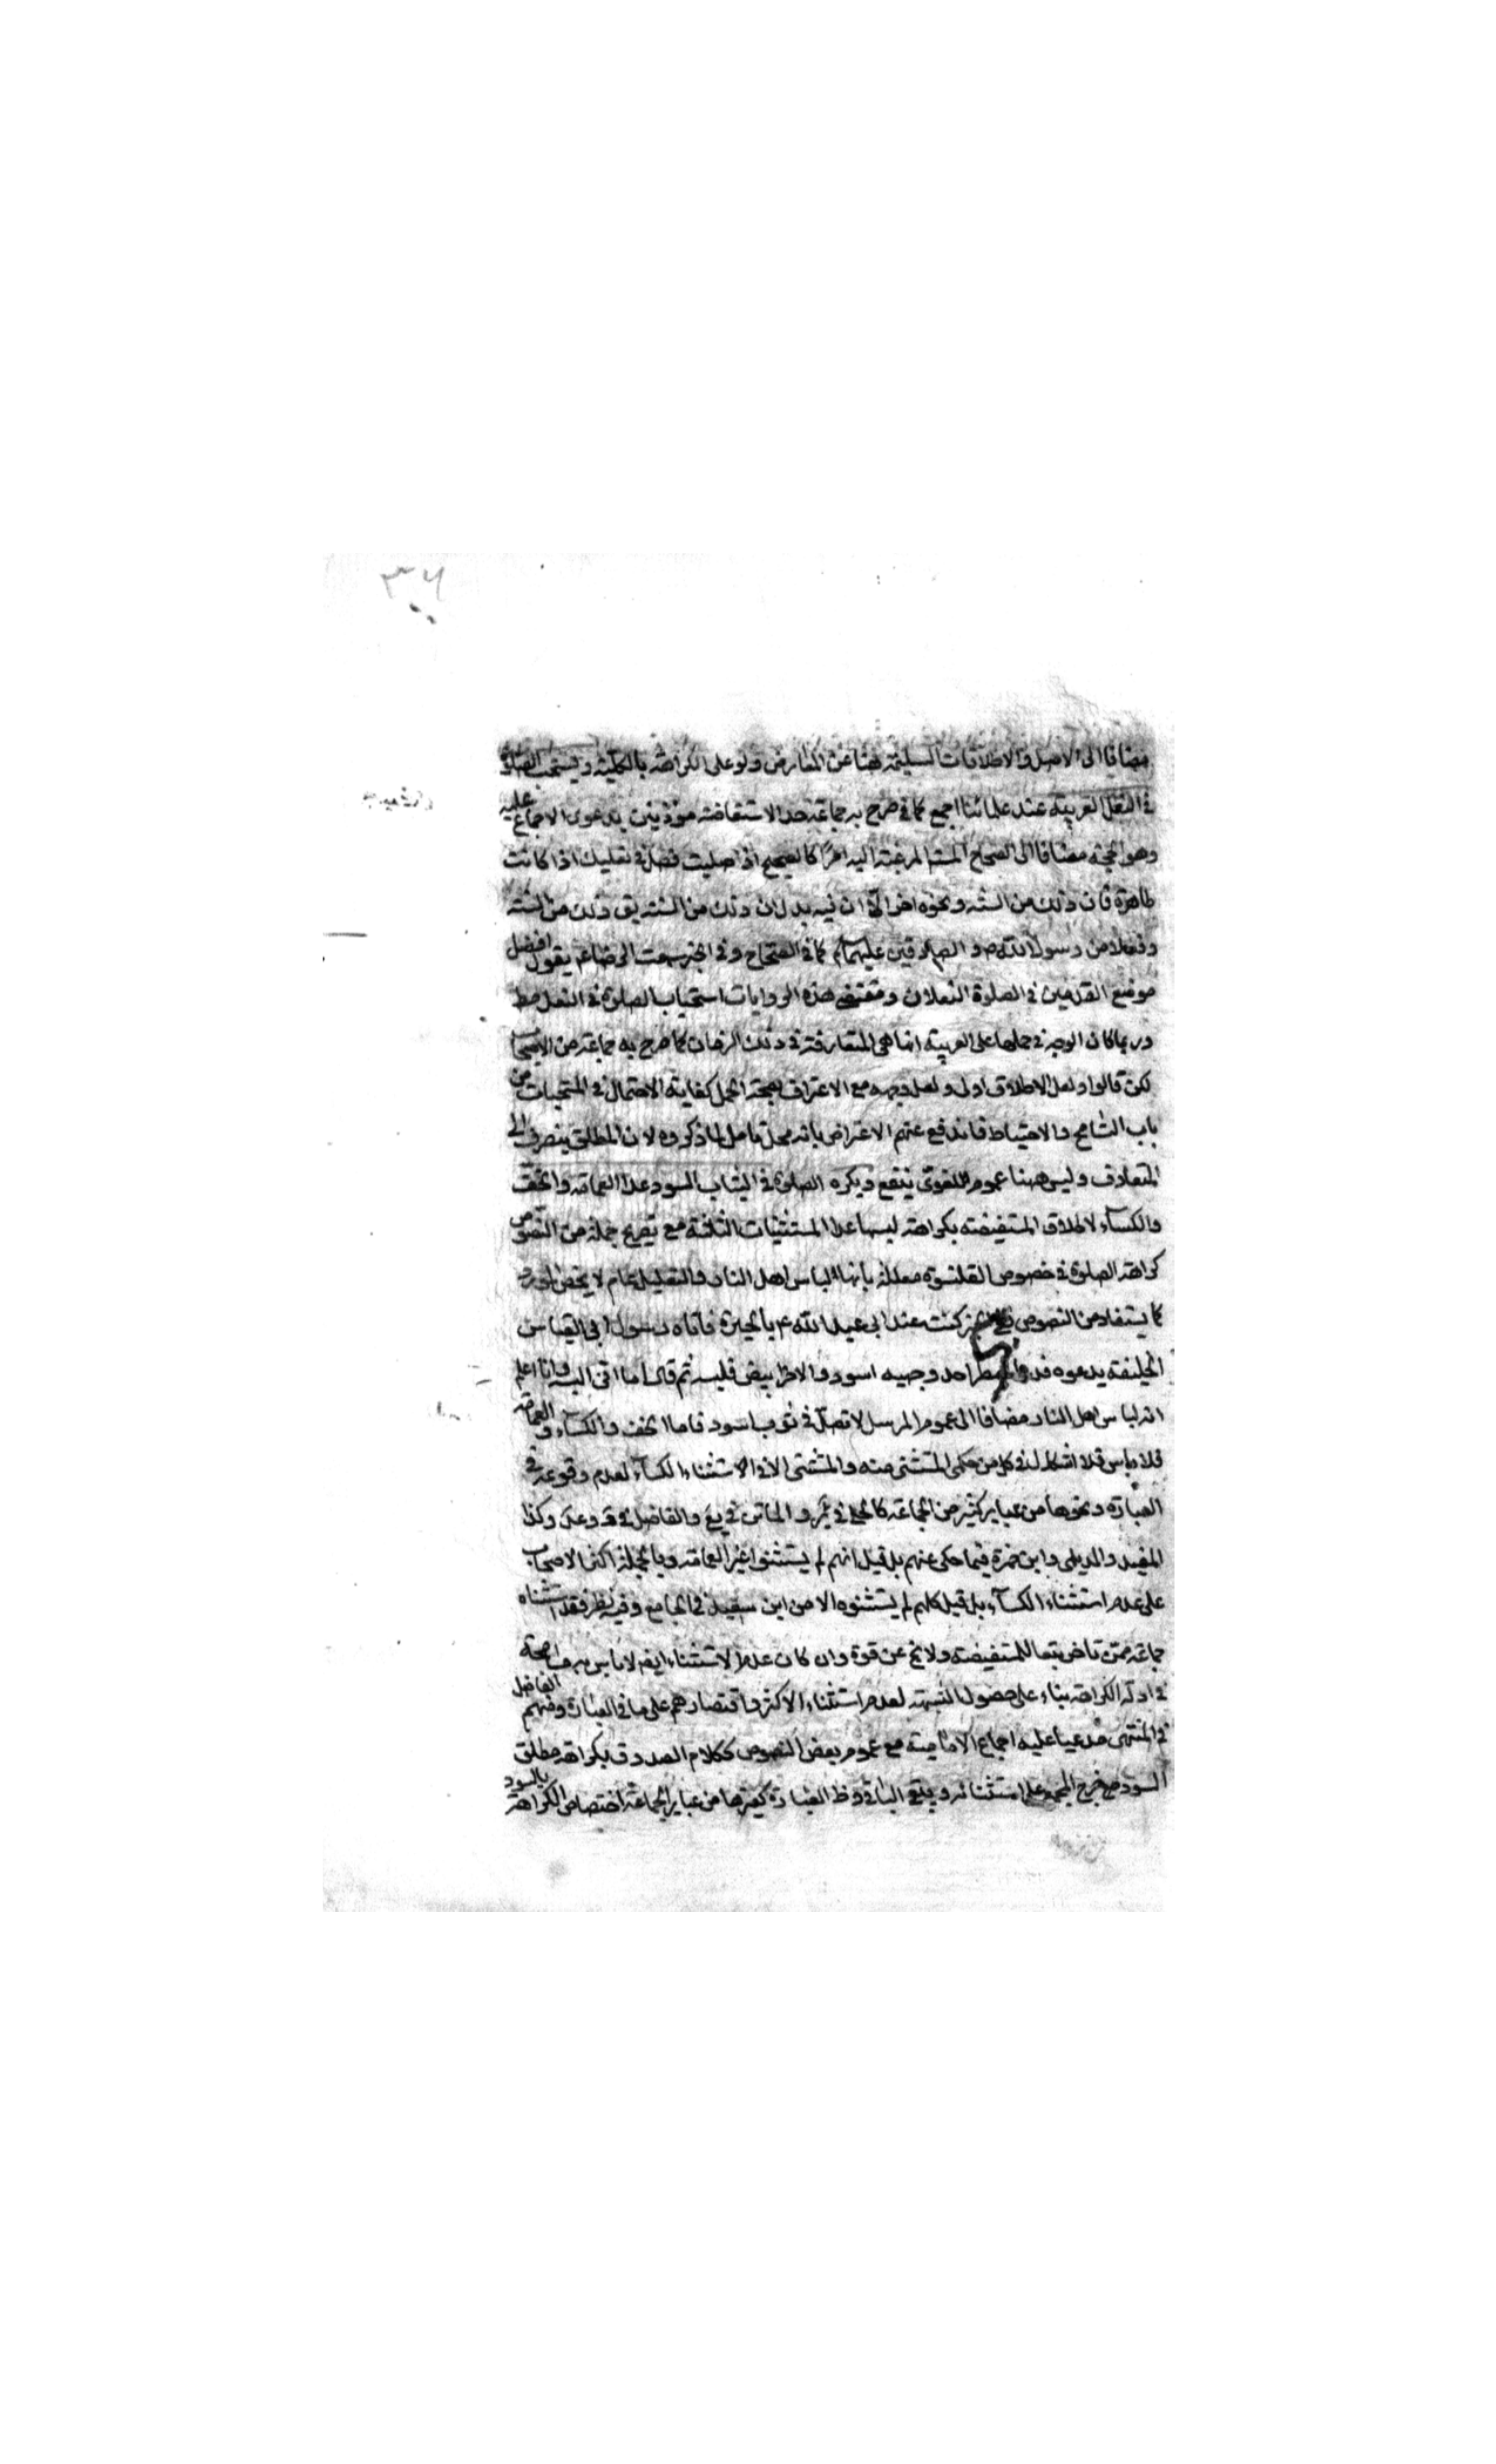 ٣٦
مضافا الى الاصل والاطلاقات السليمة هنا عن المعارض ولو على الكراهة بالكلية ويستحب الصلوة
في النعل العربية عند علمائنا اجمع كما صرح به جماعة حد الاستفاضة مؤذنين بدعوى الاجماع عليه
وهو الحجة مضافا الى الصحاح المتضمنة اليه امرا كالصحيح اذا صليت فصل في نعليك اذا كانت
طاهرة فان ذلك من السنة ونحوه اخر الا ان فيه بدل ان ذلك من السنة يق ذلك من السنة
وفعلا من رسول الله ص و الصادقين عليهما كما في الصحاح وفي الخبر سمعت الرضا ع يقول افضل
موضع القدمين في الصلوة النعلان ومقتضى هذه الروايات استحباب الصلوة في النعل مط
وربما كان الوجه في حملها على العربية انها هي المتعارفة في ذلك الزمان كما صرح به جماعة من الاصحاب
لكن قالوا ولعل الاطلاق اولى ولعل وجهه مع الاعتراف بصحة الحمل كفاية الاحتمال في المستحبات من
باب التسامح والاحتياط فاندفع عنهم الاعتراض بانه محل تامل لما ذكروه لان المطلق ينصرف الى
المتعارف وليس ههنا عموم لغوى ينفع ويكره الصلوة في الثياب السود عدا العمامة والخف
والكساء لاطلاق المستفيضة بكراهة لبسها عدا المستثنيات الثلاثة مع تصريح جملة من النصوص
كراهة الصلوة في خصوص القلنسوة معللة بانها لباس اهل النار والتعليل عام لا يخص المورد
كما يستفاد من النصوص كنت عند ابى عبد الله ع بالحيرة فاتاه رسول ابى العباس
الخليفة يدعوه فدعا احد وجهيه اسود والاخر ابيض فلبسه ثم قال اما انى البسه وانا اعلم
انه لباس اهل النار مضافا الى عموم المرسل لا تصل في ثوب اسود فاما الخف والكساء والعمامة
فلا باس فلا اشكال في كل من حكمى المستثنى منه والمستثنى الا في الاستثناء الكساء لعدم وقوعه في
العبارة ونحوها من عباير كثير من الجماعة والماتن في يع والفاضل في وكذا
المفيد والديلمى وابن حمزة فيما حكى عنهم بل قيل انهم لم يستثنوا غير العمامة وبالجملة اكثر الاصحاب
على عدم استثناء الكساء بل قيل كلهم لم يستثنوه الا من ابن سعيد في الجامع وفيه نظر فقد استثناه
جماعة ممن تاخر تبعا للمستفيضة ولا يخ عن قوة وان كان عدم الاستثناء ايضا لا باس به مسامحة
في ادلة الكراهة بناء على حصول الشبهة لعدم استثناء الاكثر واقتصارهم على ما في العبارة ومنهم الفاضل
في المنتهى مدعيا عليه اجماع الامامية مع عموم بعض النصوص ككلام الصدوق بكراهة مطلق
السود خرج المجمع على استثنائه وبقى الباقى وظ العبارة كغيرها من عباير الجماعة اختصاص الكراهة بالسود